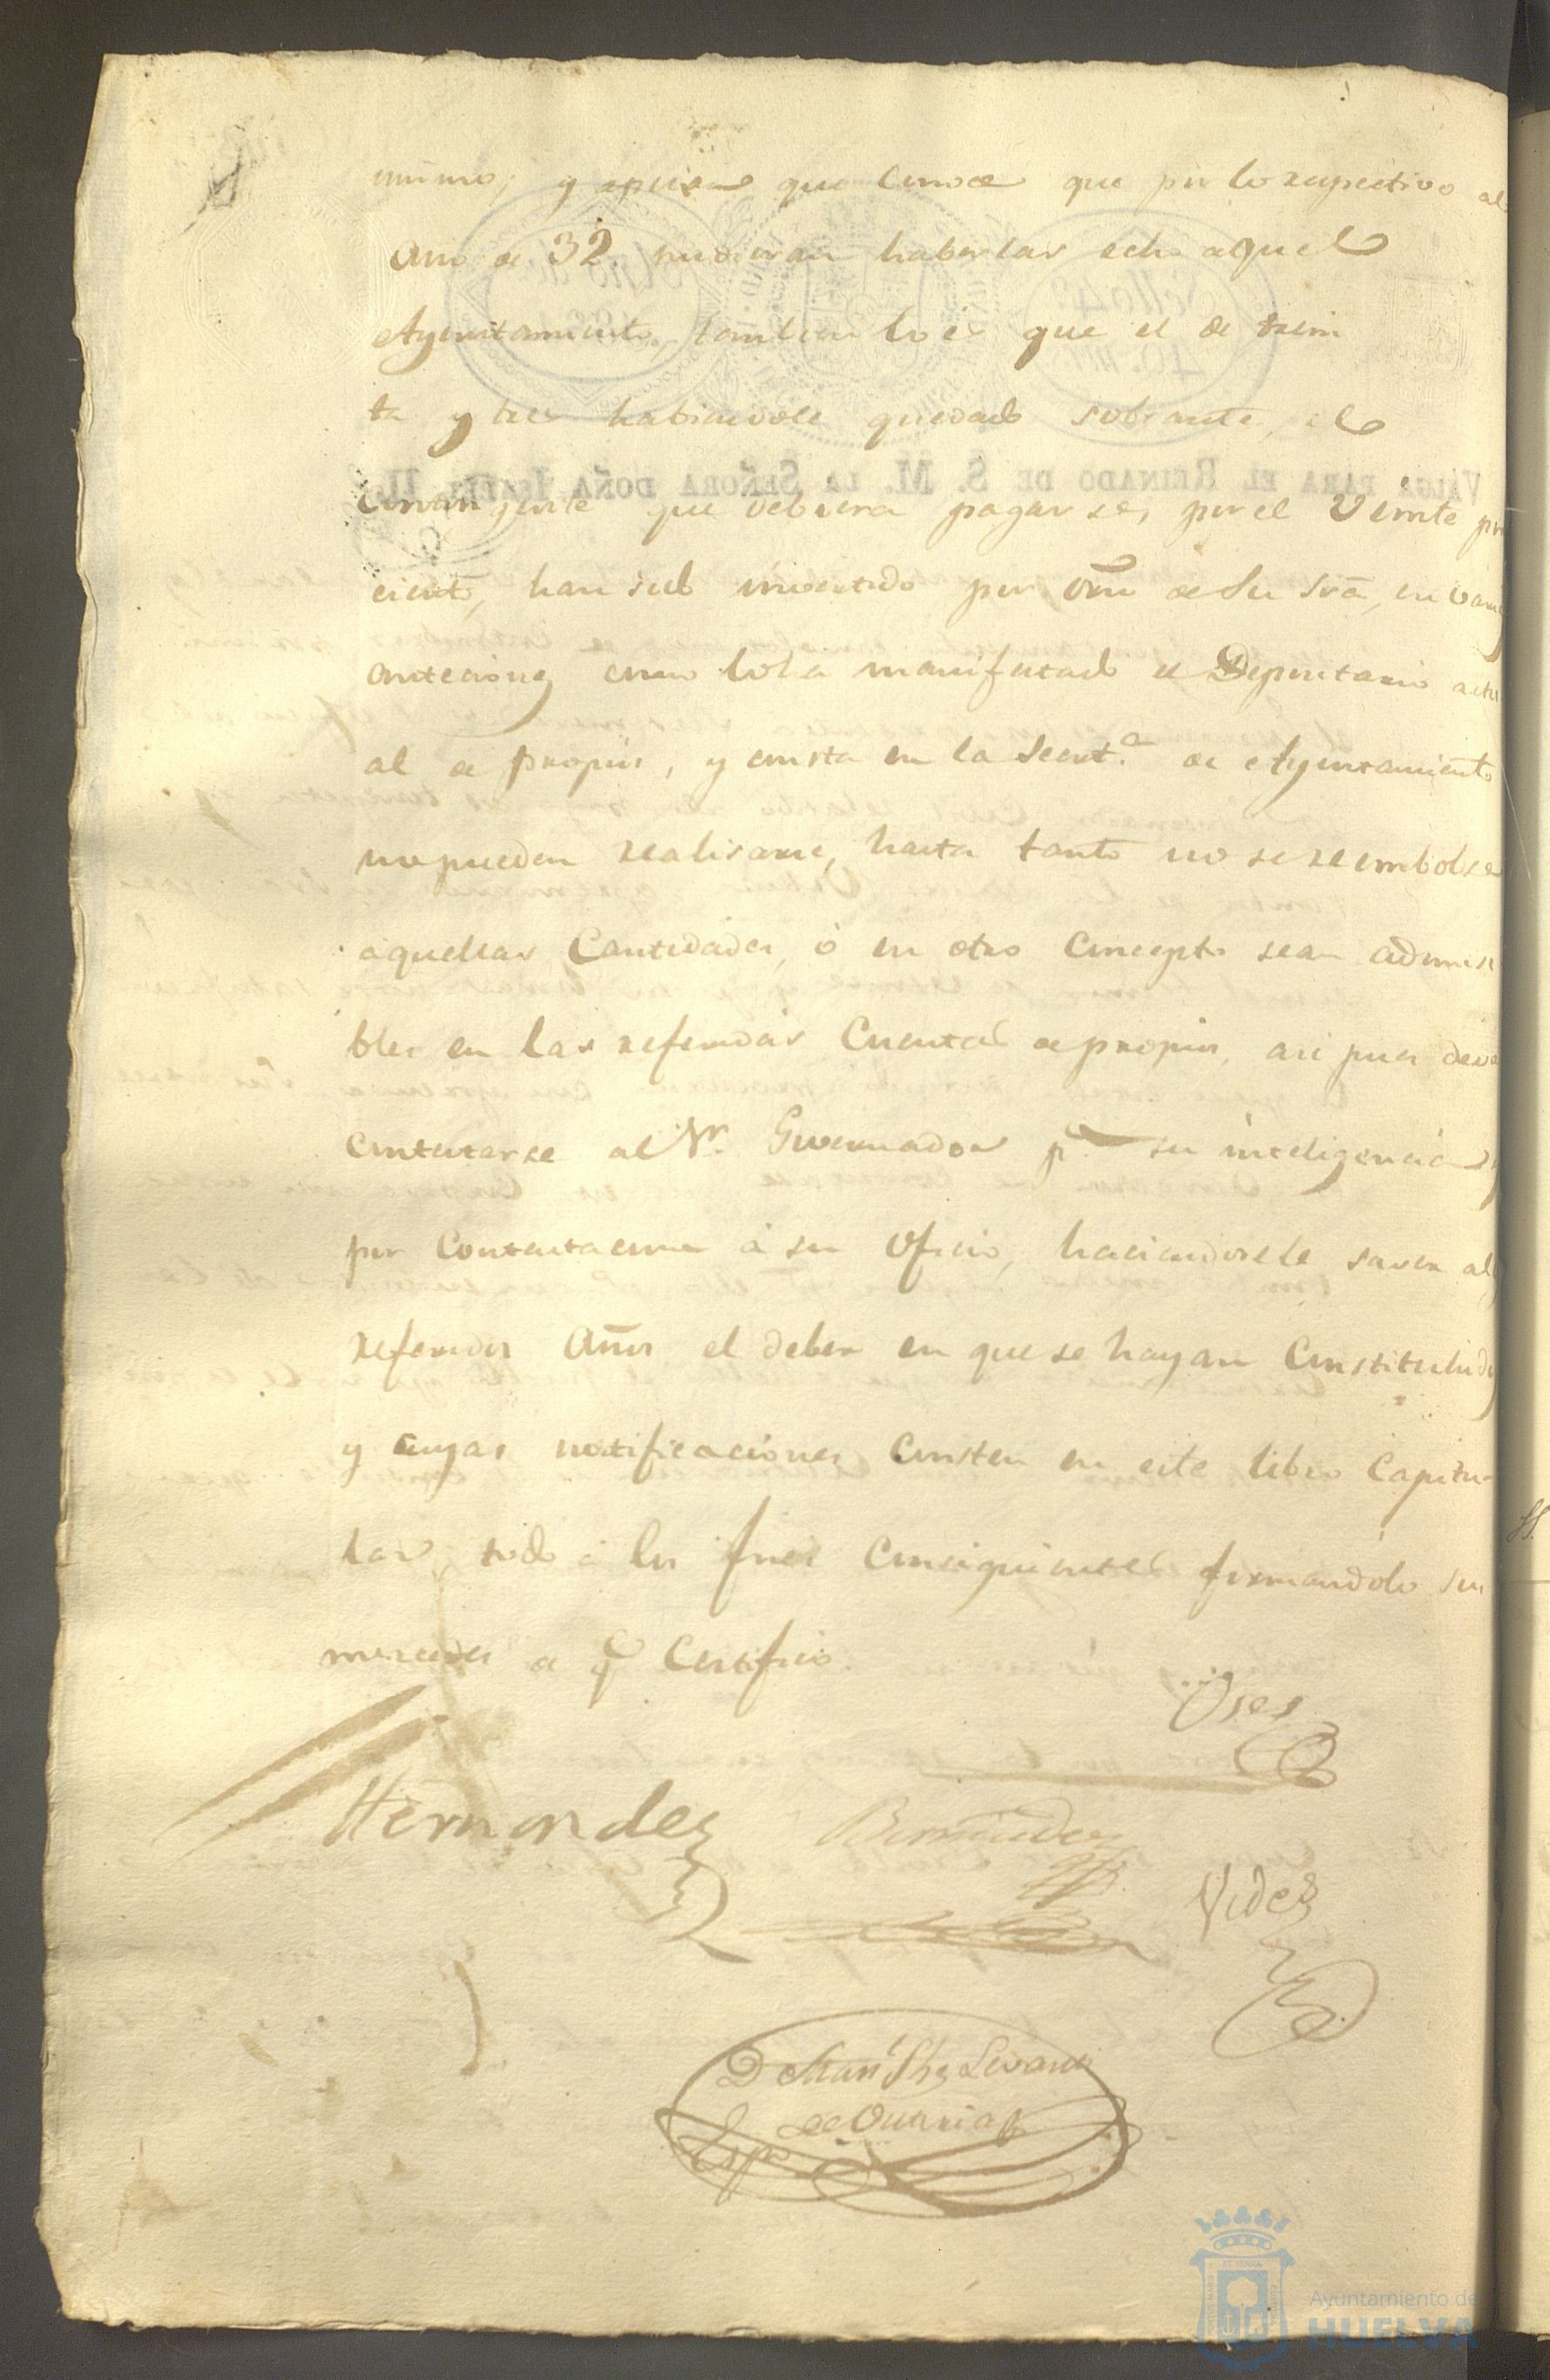 mismo, y aunque conoce que por lo respectivo al
Año de 32. pudieran haberlas echo aquel
Ayuntamiento, tambien lo es que el de trein
ta y tres habiendole quedado sobrante, el
contingente que debiera pagarse, por el veinte por
ciento, han sido invertido por orn de Su Sria, en
como lo ha manifestado el Depositario actu
al de propios, y consta en la Secret.ª de Ayuntamiento
no pueden realisarse, hasta tanto no se reembolse
aquellas Cantidades, ó en otro Concepto sean admisi
bles en las referidas Cuentas de propios, asi pues deve
Contestarse al Sr. Governador pª su inteligencia y
por Contestacion á su Oficio, haciendosele saver al
referidos Años el deber en que se hayan Constituidos
y cuyas notificaciones Consten en este libro Capitu-
lar, todo á los fines Consiguientes firmandolo sus
mercedes de q Certifico.
Oses
Hernandez Bermudez
Videz
D Man.l Shz
Esno
VALGA PARA EL REINADO DE S. M. LA SEÑORA DOÑA ISABEL II.
Sello 4º
40. mrs.
Ayuntamiento de
HUELVA